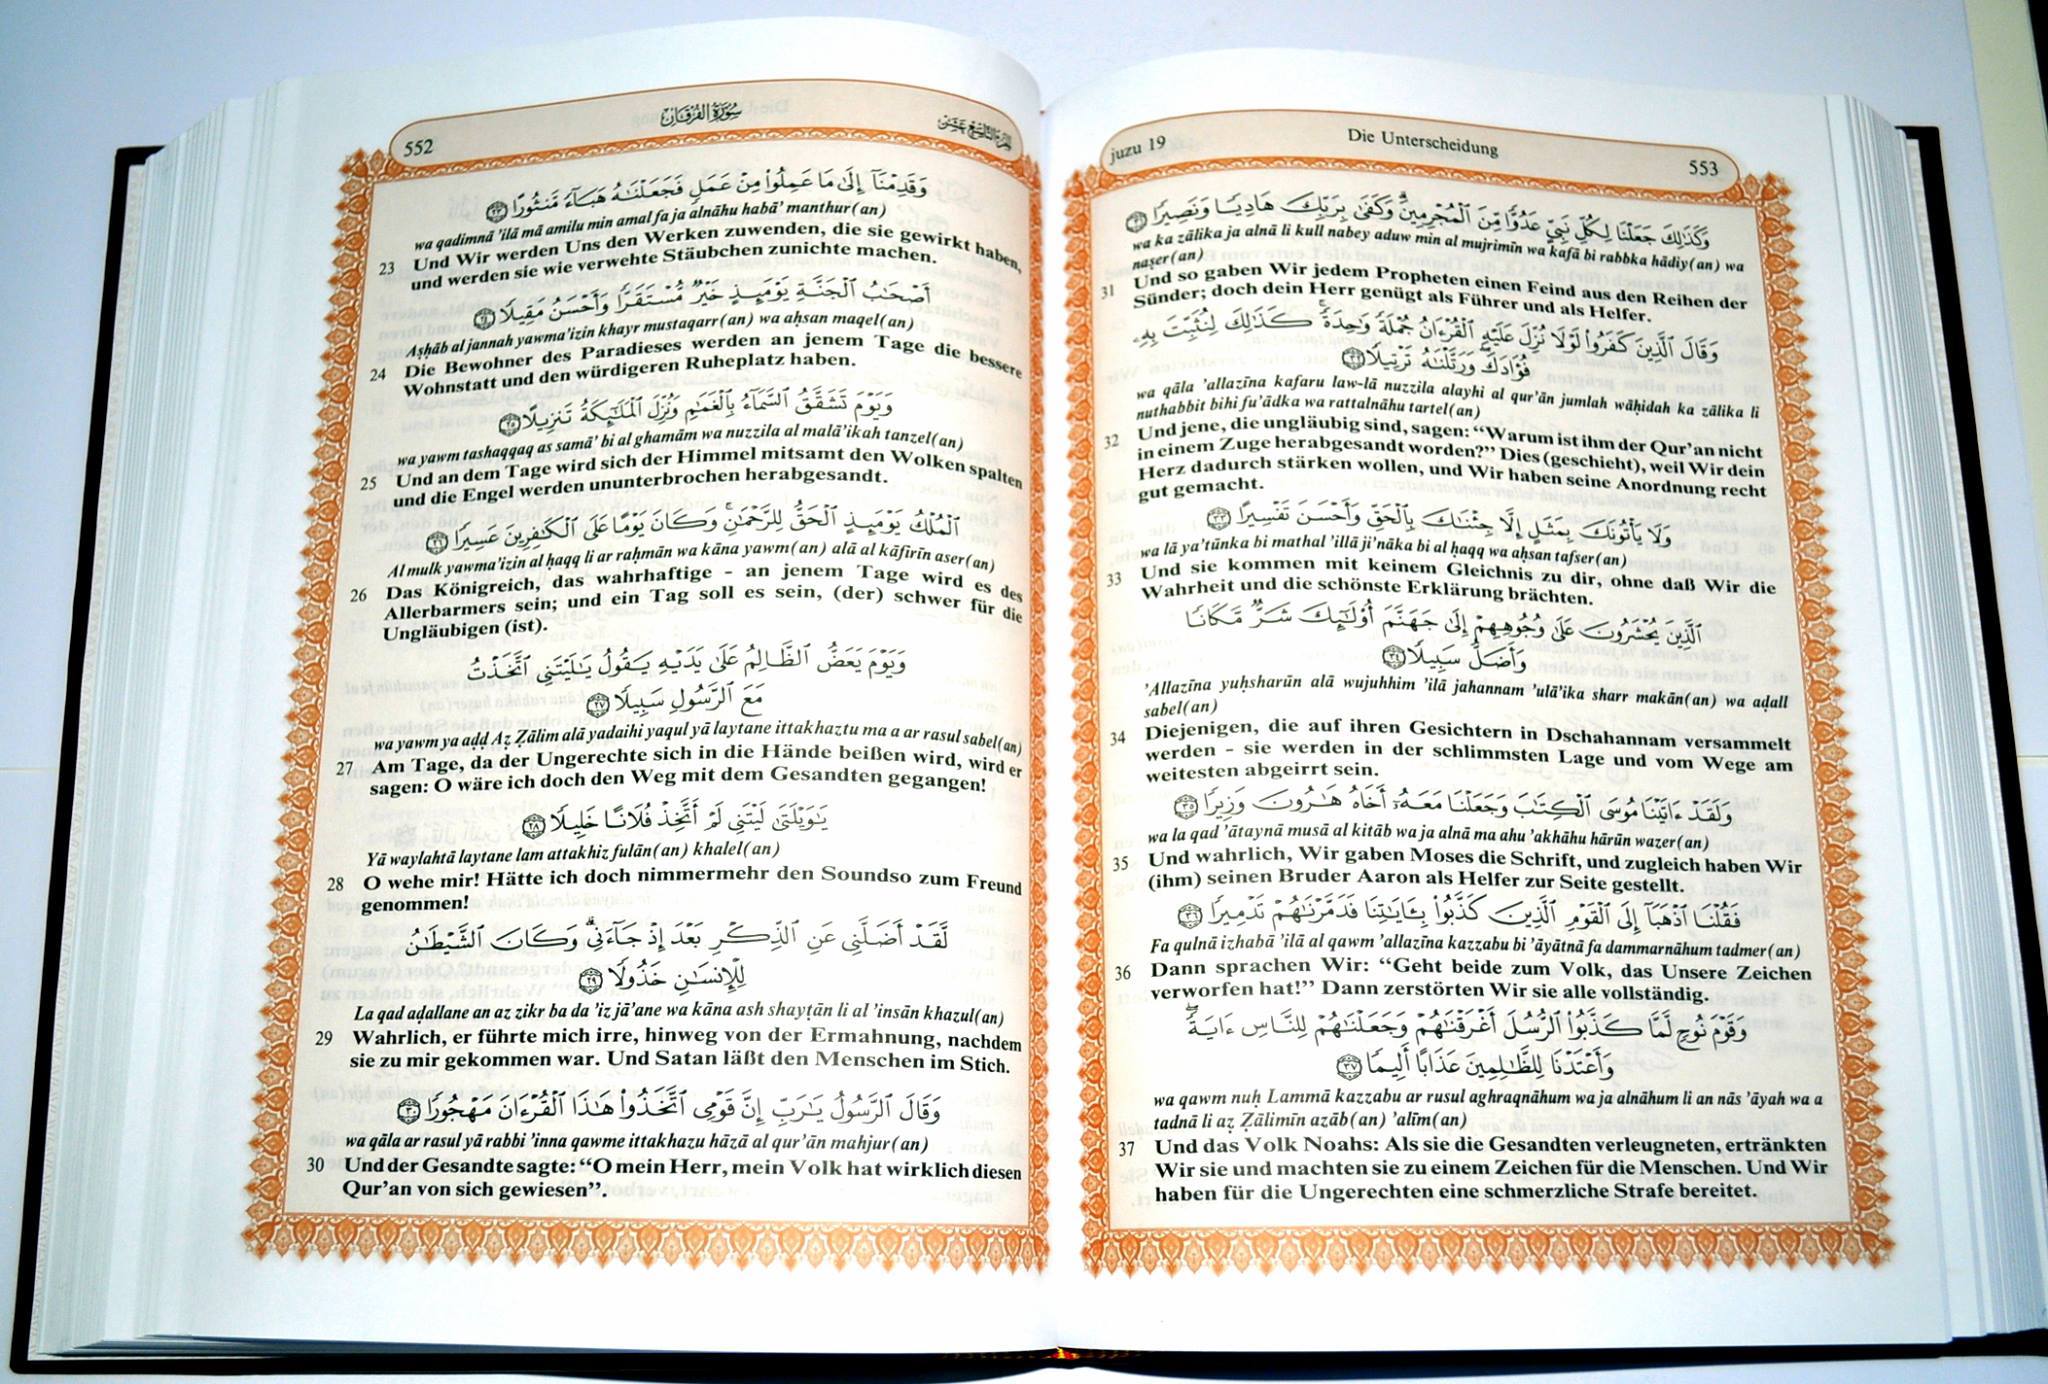 552
سُورَةُ الفُرْقَان
الجزء التاسع عشر
وَقَدِمْنَآ إِلَىٰ مَا عَمِلُوا۟ مِنْ عَمَلٍ فَجَعَلْنَٰهُ هَبَآءً مَّنثُورًا ٢٣
wa qadimnā 'ilā mā amilu min amal fa ja alnāhu habā' manthur(an)
23 Und Wir werden Uns den Werken zuwenden, die sie gewirkt haben,
und werden sie wie verwehte Stäubchen zunichte machen.
أَصْحَٰبُ ٱلْجَنَّةِ يَوْمَئِذٍ خَيْرٌ مُّسْتَقَرًّا وَأَحْسَنُ مَقِيلًا ٢٤
Aṣḥāb al jannah yawma'izin khayr mustaqarr(an) wa aḥsan maqel(an)
24 Die Bewohner des Paradieses werden an jenem Tage die bessere
Wohnstatt und den würdigeren Ruheplatz haben.
وَيَوْمَ تَشَقَّقُ ٱلسَّمَآءُ بِٱلْغَمَٰمِ وَنُزِّلَ ٱلْمَلَٰٓئِكَةُ تَنزِيلًا ٢٥
wa yawm tashaqqaq as samā' bi al ghamām wa nuzzila al malā'ikah tanzel(an)
25 Und an dem Tage wird sich der Himmel mitsamt den Wolken spalten
und die Engel werden ununterbrochen herabgesandt.
ٱلْمُلْكُ يَوْمَئِذٍ ٱلْحَقُّ لِلرَّحْمَٰنِ ۚ وَكَانَ يَوْمًا عَلَى ٱلْكَٰفِرِينَ عَسِيرًا ٢٦
Al mulk yawma'izin al ḥaqq li ar raḥmān wa kāna yawm(an) alā al kāfirīn aser(an)
26 Das Königreich, das wahrhaftige - an jenem Tage wird es des
Allerbarmers sein; und ein Tag soll es sein, (der) schwer für die
Ungläubigen (ist).
وَيَوْمَ يَعَضُّ ٱلظَّالِمُ عَلَىٰ يَدَيْهِ يَقُولُ يَٰلَيْتَنِى ٱتَّخَذْتُ
مَعَ ٱلرَّسُولِ سَبِيلًا ٢٧
wa yawm ya aḍḍ Aẓ Ẓālim alā yadaihi yaqul yā laytane ittakhaztu ma a ar rasul sabel(an)
27 Am Tage, da der Ungerechte sich in die Hände beißen wird, wird er
sagen: O wäre ich doch den Weg mit dem Gesandten gegangen!
يَٰوَيْلَتَىٰ لَيْتَنِى لَمْ أَتَّخِذْ فُلَانًا خَلِيلًا ٢٨
Yā waylahtā laytane lam attakhiz fulān(an) khalel(an)
28 O wehe mir! Hätte ich doch nimmermehr den Soundso zum Freund
genommen!
لَّقَدْ أَضَلَّنِى عَنِ ٱلذِّكْرِ بَعْدَ إِذْ جَآءَنِى ۗ وَكَانَ ٱلشَّيْطَٰنُ
لِلْإِنسَٰنِ خَذُولًا ٢٩
La qad aḍallane an az zikr ba da 'iz jā'ane wa kāna ash shayṭān li al 'insān khazul(an)
29 Wahrlich, er führte mich irre, hinweg von der Ermahnung, nachdem
sie zu mir gekommen war. Und Satan läßt den Menschen im Stich.
وَقَالَ ٱلرَّسُولُ يَٰرَبِّ إِنَّ قَوْمِى ٱتَّخَذُوا۟ هَٰذَا ٱلْقُرْءَانَ مَهْجُورًا ٣٠
wa qāla ar rasul yā rabbi 'inna qawme ittakhazu hāzā al qur'ān mahjur(an)
30 Und der Gesandte sagte: “O mein Herr, mein Volk hat wirklich diesen
Qur'an von sich gewiesen”.
juzu 19
Die Unterscheidung
553
وَكَذَٰلِكَ جَعَلْنَا لِكُلِّ نَبِىٍّ عَدُوًّا مِّنَ ٱلْمُجْرِمِينَ ۗ وَكَفَىٰ بِرَبِّكَ هَادِيًا وَنَصِيرًا ٣١
wa ka zālika ja alnā li kull nabey aduw min al mujrimīn wa kafā bi rabbka hādiy(an) wa
naṣer(an)
31 Und so gaben Wir jedem Propheten einen Feind aus den Reihen der
Sünder; doch dein Herr genügt als Führer und als Helfer.
وَقَالَ ٱلَّذِينَ كَفَرُوا۟ لَوْلَا نُزِّلَ عَلَيْهِ ٱلْقُرْءَانُ جُمْلَةً وَٰحِدَةً ۚ كَذَٰلِكَ لِنُثَبِّتَ بِهِۦ
فُؤَادَكَ ۖ وَرَتَّلْنَٰهُ تَرْتِيلًا ٣٢
wa qāla 'allazīna kafaru law-lā nuzzila alayhi al qur'ān jumlah wāḥidah ka zālika li
nuthabbit bihi fu'ādka wa rattalnāhu tartel(an)
32 Und jene, die ungläubig sind, sagen: “Warum ist ihm der Qur'an nicht
in einem Zuge herabgesandt worden?” Dies (geschieht), weil Wir dein
Herz dadurch stärken wollen, und Wir haben seine Anordnung recht
gut gemacht.
وَلَا يَأْتُونَكَ بِمَثَلٍ إِلَّا جِئْنَٰكَ بِٱلْحَقِّ وَأَحْسَنَ تَفْسِيرًا ٣٣
wa lā ya'tūnka bi mathal 'illā ji'nāka bi al ḥaqq wa aḥsan tafser(an)
33 Und sie kommen mit keinem Gleichnis zu dir, ohne daß Wir die
Wahrheit und die schönste Erklärung brächten.
ٱلَّذِينَ يُحْشَرُونَ عَلَىٰ وُجُوهِهِمْ إِلَىٰ جَهَنَّمَ أُو۟لَٰٓئِكَ شَرٌّ مَّكَانًا
وَأَضَلُّ سَبِيلًا ٣٤
'Allazīna yuḥsharūn alā wujuhhim 'ilā jahannam 'ulā'ika sharr makān(an) wa aḍall
sabel(an)
34 Diejenigen, die auf ihren Gesichtern in Dschahannam versammelt
werden - sie werden in der schlimmsten Lage und vom Wege am
weitesten abgeirrt sein.
وَلَقَدْ ءَاتَيْنَا مُوسَى ٱلْكِتَٰبَ وَجَعَلْنَا مَعَهُۥٓ أَخَاهُ هَٰرُونَ وَزِيرًا ٣٥
wa la qad 'ātaynā musā al kitāb wa ja alnā ma ahu 'akhāhu hārūn wazer(an)
35 Und wahrlich, Wir gaben Moses die Schrift, und zugleich haben Wir
(ihm) seinen Bruder Aaron als Helfer zur Seite gestellt.
فَقُلْنَا ٱذْهَبَآ إِلَى ٱلْقَوْمِ ٱلَّذِينَ كَذَّبُوا۟ بِـَٔايَٰتِنَا فَدَمَّرْنَٰهُمْ تَدْمِيرًا ٣٦
Fa qulnā izhabā 'ilā al qawm 'allazīna kazzabu bi 'āyātnā fa dammarnāhum tadmer(an)
36 Dann sprachen Wir: “Geht beide zum Volk, das Unsere Zeichen
verworfen hat!” Dann zerstörten Wir sie alle vollständig.
وَقَوْمَ نُوحٍ لَّمَّا كَذَّبُوا۟ ٱلرُّسُلَ أَغْرَقْنَٰهُمْ وَجَعَلْنَٰهُمْ لِلنَّاسِ ءَايَةً ۖ
وَأَعْتَدْنَا لِلظَّٰلِمِينَ عَذَابًا أَلِيمًا ٣٧
wa qawm nuḥ Lammā kazzabu ar rusul aghraqnāhum wa ja alnāhum li an nās 'āyah wa a
tadnā li aẓ Ẓālimīn azāb(an) 'alīm(an)
37 Und das Volk Noahs: Als sie die Gesandten verleugneten, ertränkten
Wir sie und machten sie zu einem Zeichen für die Menschen. Und Wir
haben für die Ungerechten eine schmerzliche Strafe bereitet.